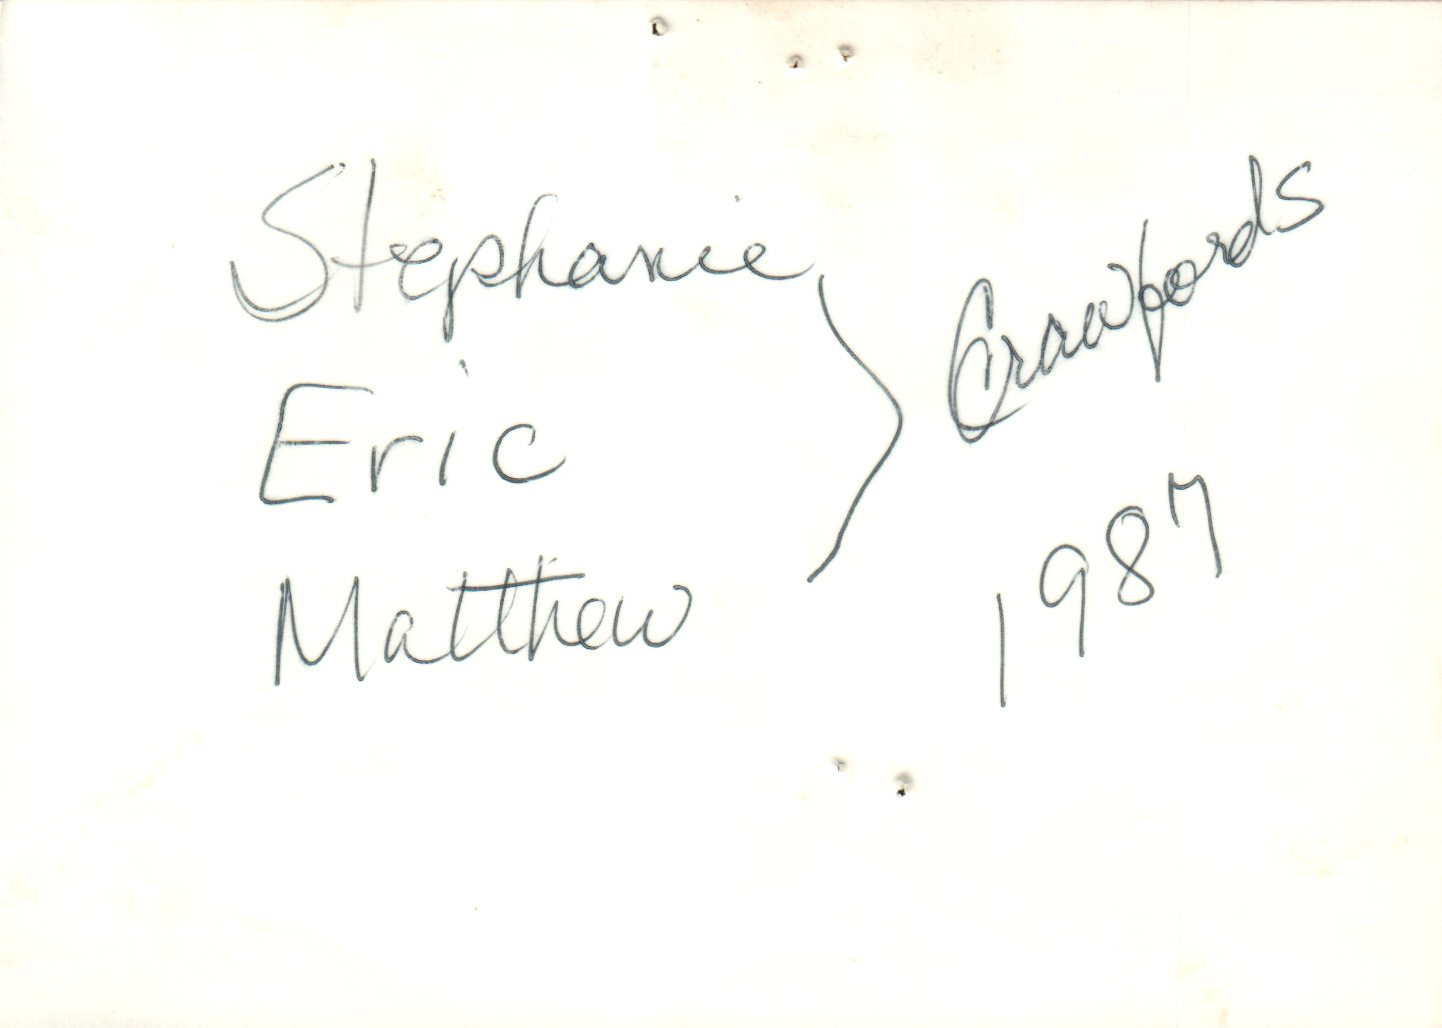 Stephanie
Eric
Matthew
Crawfords
1987